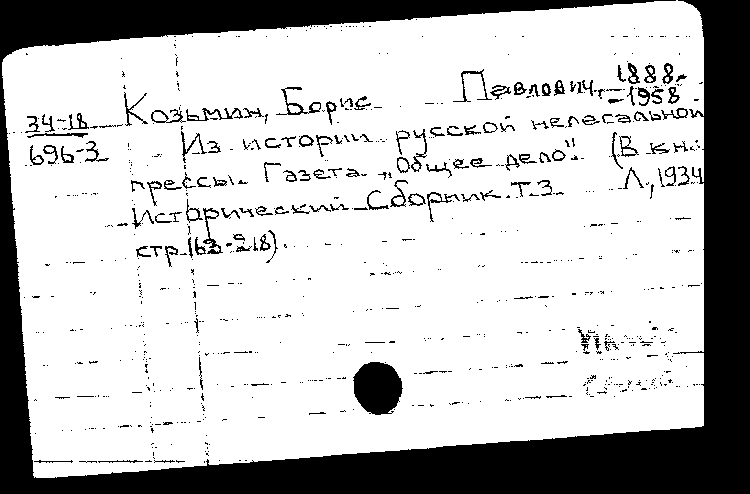 34-18
696-3
Козьмин, Борис Павлович, 1888-
-1958
Из истории русской нелегальной
прессы. Газета „Общее дело". (В кн.:
Исторический Сборник. Т.3 Л., 1934
стр. 218).